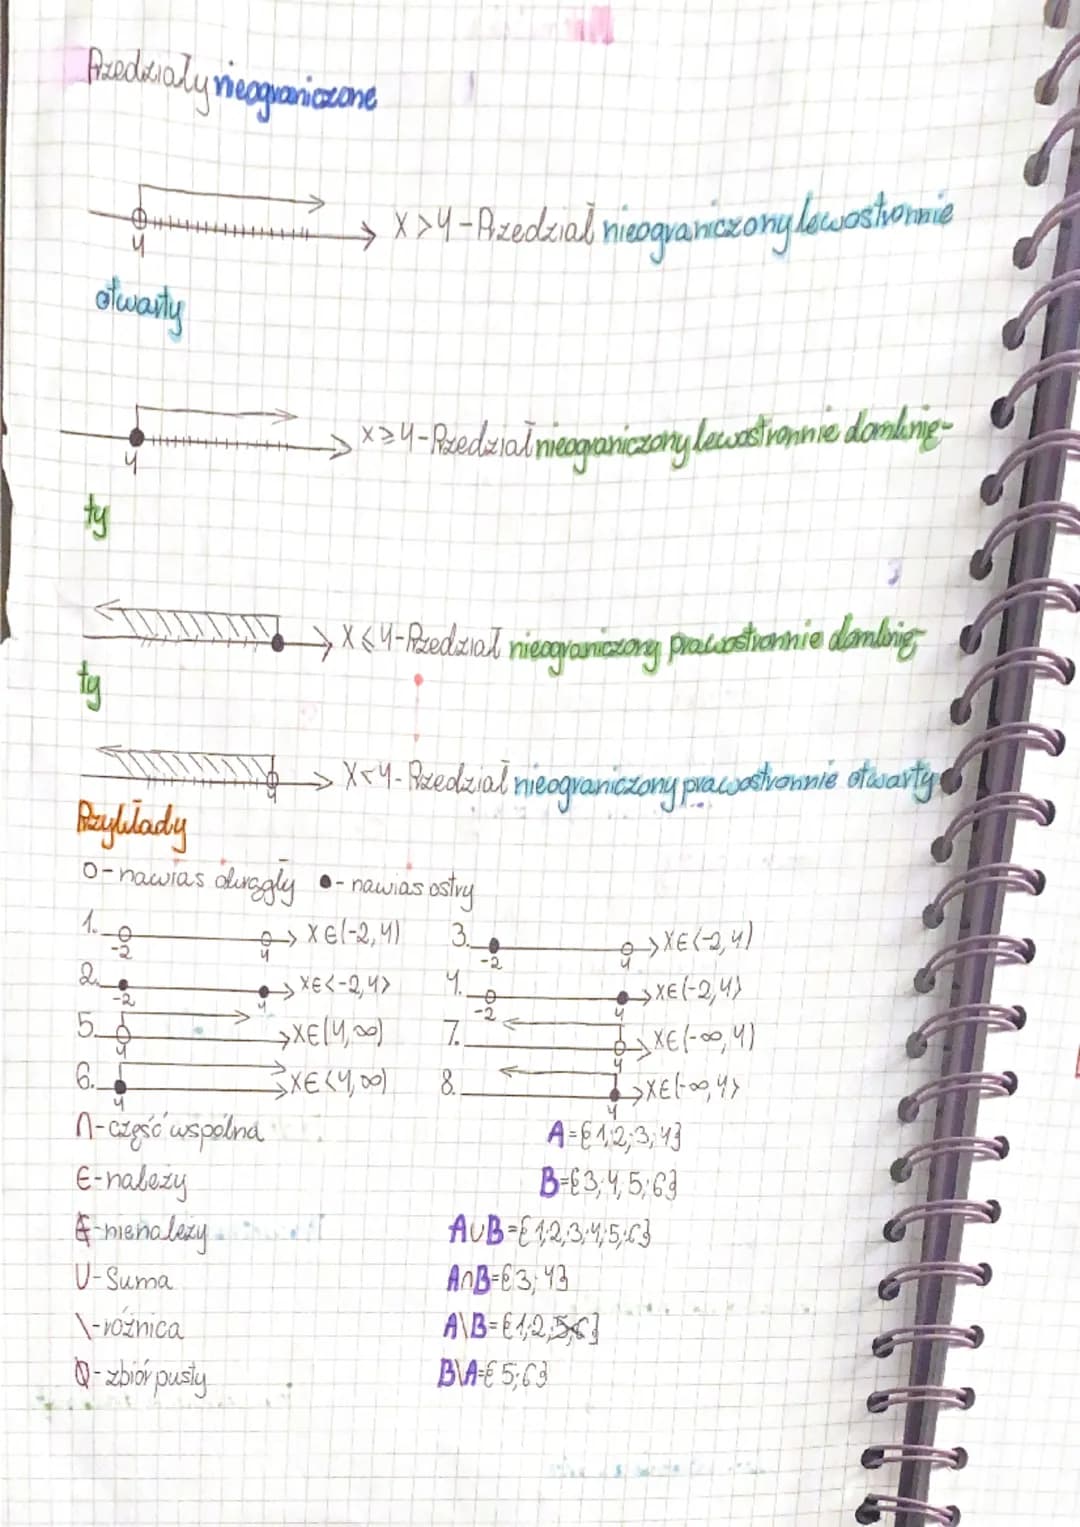 Przedziały nieograniczone
4
x > 4 - Przedział nieograniczony lewostronnie
otwarty
4
x ≥ 4 - Przedział nieograniczony lewostronnie domknię-
ty
x ≤ 4 - Przedział nieograniczony prawostronnie domknię-
ty
4
x < 4 - Przedział nieograniczony prawostronnie otwarty
Przykłady
○ - nawias okrągły ● - nawias ostry
1. -2 4 x∈(-2,4) 3. -2 4 x∈<-2,4)
2. -2 4 x∈<-2,4> 4. -2 4 x∈(-2,4>
5. 4 x∈(4,∞) 7. 4 x∈(-∞,4)
6. 4 x∈<4,∞) 8. 4 x∈(-∞,4>
∩ - część wspólna A={1;2;3;4}
∈ - należy B={3;4;5;6}
∉ - nienależy A∪B={1;2;3;4;5;6}
∪ - Suma A∩B={3;4}
\ - różnica A\B={1;2;5;6}
∅ - zbiór pusty B\A={5;6}